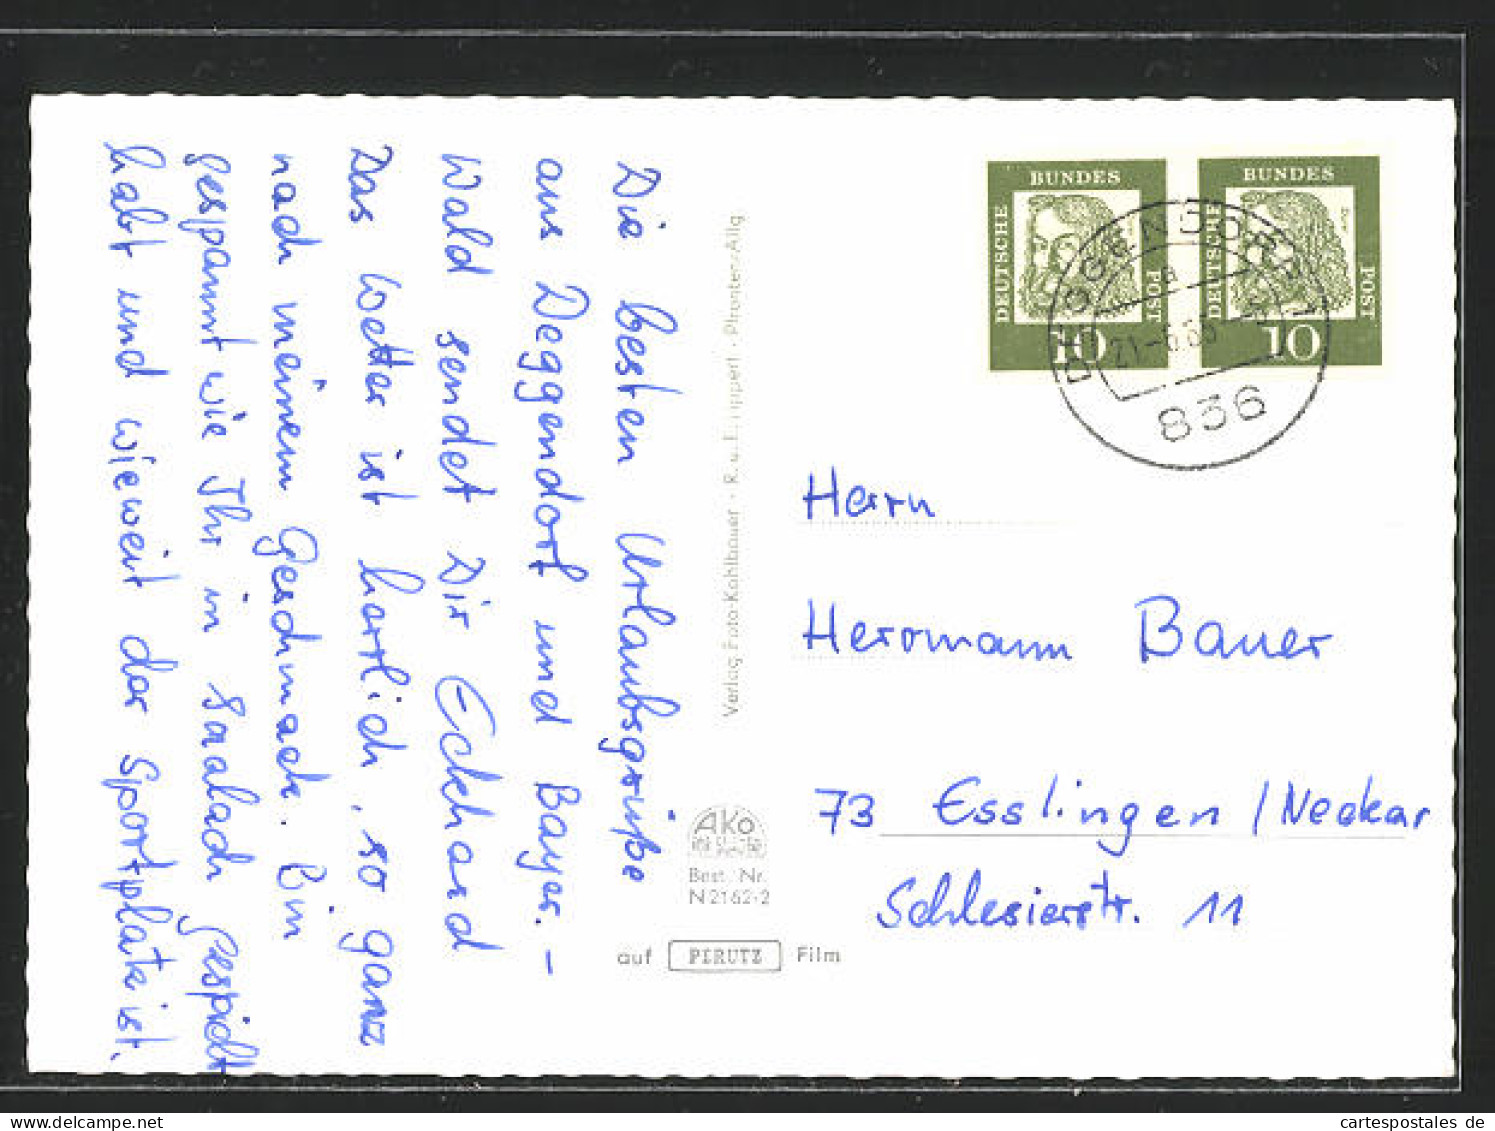 Die besten Urlaubsgrüße
aus Deggendorf und Bayer. –
Wald sendet Dir Eckhard
Das Wetter ist herrlich, so ganz
nach meinem Geschmack. Bin
gespannt wie Ihr in Salach gespielt
habt und wieweit der Sportplatz ist.
Verlag Foto-Kohlbauer · R. u. E. Lippert · Pfronten/Allg.
AKO
Best. Nr.
N 2162-2
auf PERUTZ Film
DEUTSCHE BUNDES POST
10
DEUTSCHE BUNDES POST
Dürer
10
DEGGENDORF 1
a
21.-6.65
836
Herrn
Herrmann Bauer
73 Esslingen / Neckar
Schlesierstr. 11
www.cartespostales.de
cartespostales de